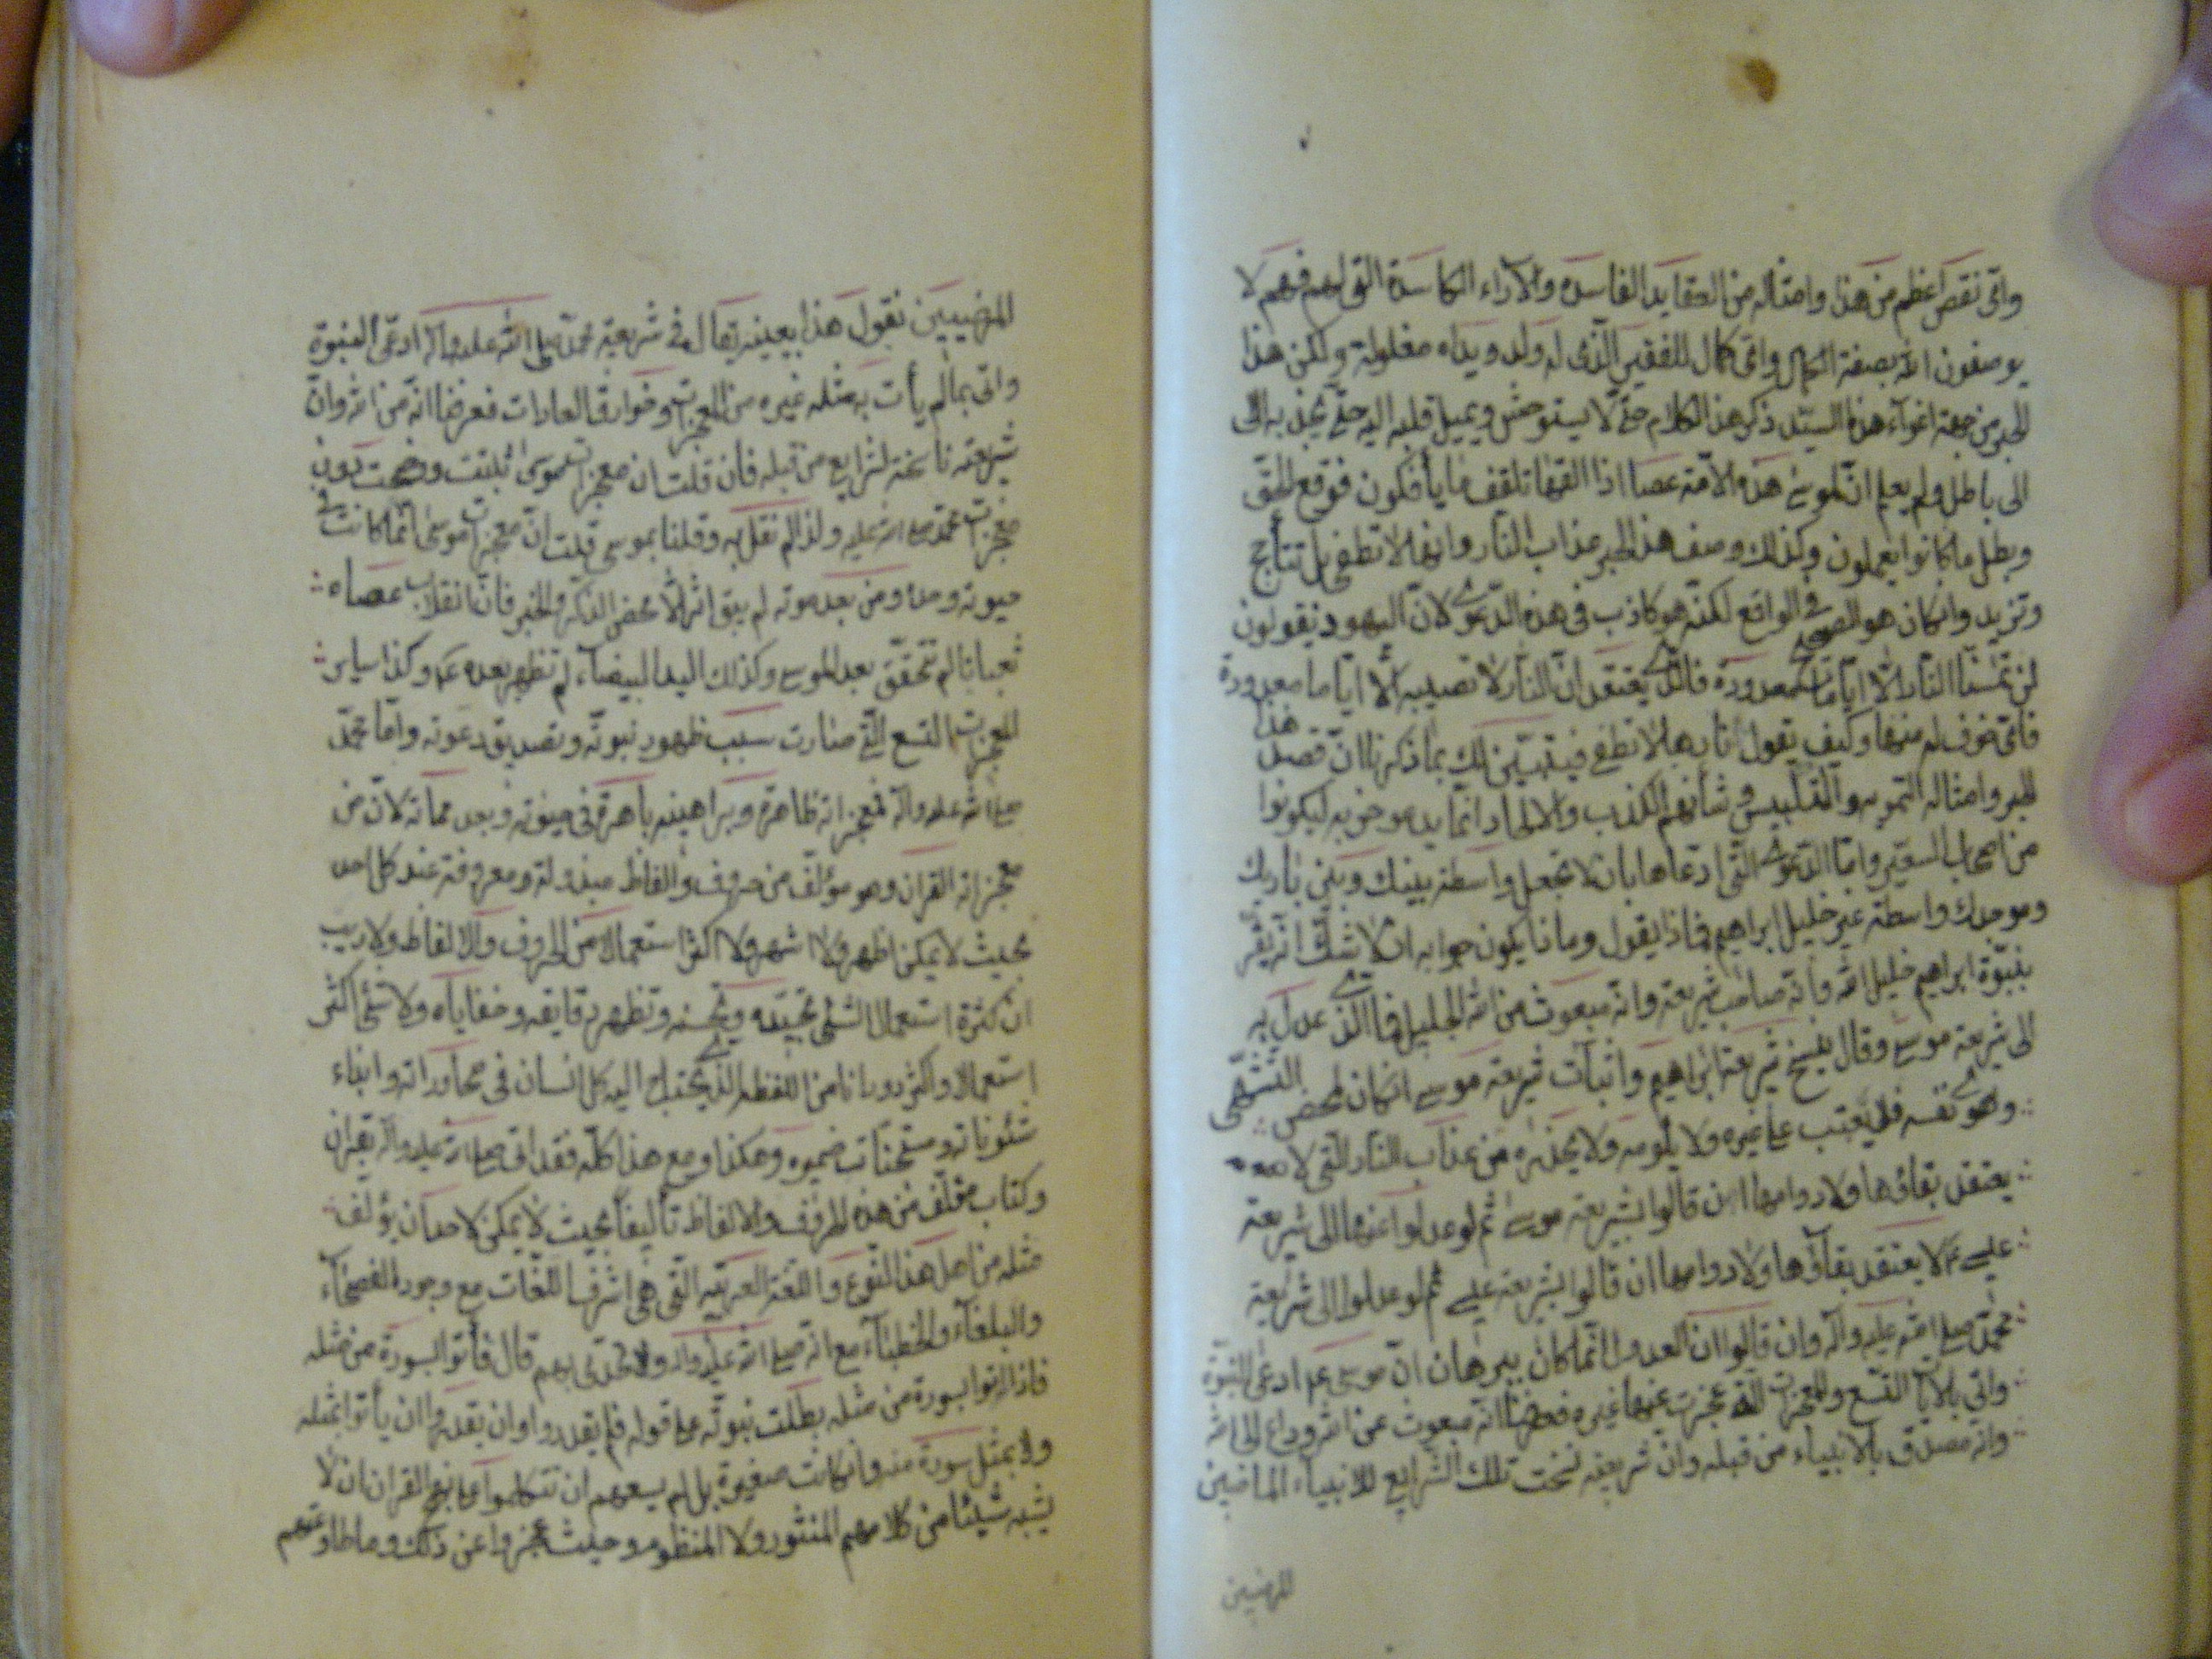 واى نقص اعظم من هذا وامثاله من العقايد الفاسدة والآراء الكاسدة التى لهم فهم لا
يوصفون الله بصفة الكمال واى كمال للفقير الذى له ولد ويداه مغلولة ولكن هذا
الحبر من جهة اغواء هذا السيّد ذكر هذا الكلام حتى لا يستوحش ويميل قلبه اليه حتى يجذبه الى
الى باطله ولم يعلم انّ لموسى هذه الامة عصا اذا القيها تلقف ما يأفكون فوقع الحق
وبطل ما كانوا يعملون وكذلك وصف هذا الحبر عذاب النار وانها لا تطفى بل تتأجج
وتزيد وان كان هو الصحيح فى الواقع لكنّه هو كاذب فى هذه الدعوى لانّ اليهود يقولون
لن تمسّنا النار الّا ايّاما معدودة فالذى يعتقد انّ النار لا تصيبه الّا ايّاما معدودة
فاى خوف له منها وكيف يقول نارها لا تطفى فيتبيّن لك بما ذكرنا انّ قصد هذا
الحبر وامثاله التمويه والتلبيس وشأنهم الكذب والالحاد انّما يدعو حزبه ليكونوا
من اصحاب السعير وامّا الدعوى التى ادّعاها بان لا تجعل واسطة بينك وبين باريك
وموجدك واسطة غير خليل ابراهيم فماذا يقول وماذا يكون جوابه ان لا شكّ انّه يقرّ
بنبوّة ابراهيم خليل الله وبانّه صاحب شريعة وانّه مبعوث من الله الجليل فما الذى عدل به
الى شريعة موسى وقال بنسخ شريعة ابراهيم واثبات شريعة موسى ان كان لمحض التشهّى
وهوى نفسه فلم يعتب على غيره ولا يلومه ولا يحذره من عذاب النار التى لا
يعتقد بقاؤها ولا دوامها ان قالوا بشريعة موسى ثم لو عدلوا عنها الى شريعة
عيسى ع لا يعتقد بقاؤها ولا دوامها ان قالوا بشريعة عيسى ثم لو عدلوا الى شريعة
محمّد صلى الله عليه وآله وان قالوا ان العدول انّما كان ببرهان انّ موسى ع ادعى النبوّة
واتى بالآيات التسع والمعجزات التى عجزت عنها غيره فعرفنا انّه مبعوث من الله وداع الى الله
وانّه مصدق بالانبياء من قبله وان شريعته نسخت تلك الشرايع للانبياء الماضين
المرضيين
المرضيين نقول هذا بعينه يقال فى شريعة محمّد صلى الله عليه وآله ادعى النبوة
واتى بما لم يأت به مثله غيره من المعجزات وخوارق العادات فعرفنا انّه من الله وانّ
شريعته ناسخة لشرايع من قبله فان قلت ان معجزات موسى ثبتت وصحت دون
معجزات محمّد صلى الله عليه ولذا لم نقل به وقلنا بموسى قلت انّ معجزات موسى انّما كانت فى
حيوته ومن بعد موته لم يبق اثر الّا محض الذكر والخبر فانّ انقلاب عصاه
ثعبانا لم تتحقق بعد لموسى وكذلك اليد البيضاء لم تظهر بعده ع وكذا ساير
المعجزات التسع التى صارت سبب ظهور نبوته وتصديق دعوته وامّا محمّد
صلى الله عليه وآله فمعجزاته ظاهرة وبراهينه باهرة فى حيوته وبعد مماته لانّ من
معجزاته القران وهو مؤلّف من حروف والفاظ مبذولة ومعروفة عند كل احد
بحيث لا يمكن اظهر ولا اشهر ولا اكثر استعمالا من الحروف والالفاظ ولا ريب
ان كثرة استعمال الشئ تجيّده وتحسنه وتظهر دقايقه وخفاياه ولا شئ اكثر
استعمالا واكثر دورانا من اللفظ الذى يحتاج اليه كل انسان فى محاوراته وابناء
شئوناته ومستجنات ضميره وهكذا ومع هذا كلّه فقد اتى صلى الله عليه وآله بقران
وكتاب مؤلّف من هذه الحروف والالفاظ تأليفاً بحيث لا يمكن لاحد ان يؤلف
مثله من اهل هذا النّوع واللغة العربيّه التى هى اشرف اللغات مع وجود الفصحآء
والبلغآء والخطبآء مع انّه صلى الله عليه وآله تحدّى بهم قال فأتوا بسورة من مثله
فاذا اتوا بسورة من مثله بطلت نبوته على قوله فلم يقدروا ولن يقدروا ان يأتوا بمثله
ولا بمثل سورة منه وان كانت صغيرة بل لم يسعهم ان تتكلموا على نهج القران ان لا
يشبه شيئا من كلامهم المنثور ولا المنظوم وحيث عجزوا عن ذلك وما طاوعتهم